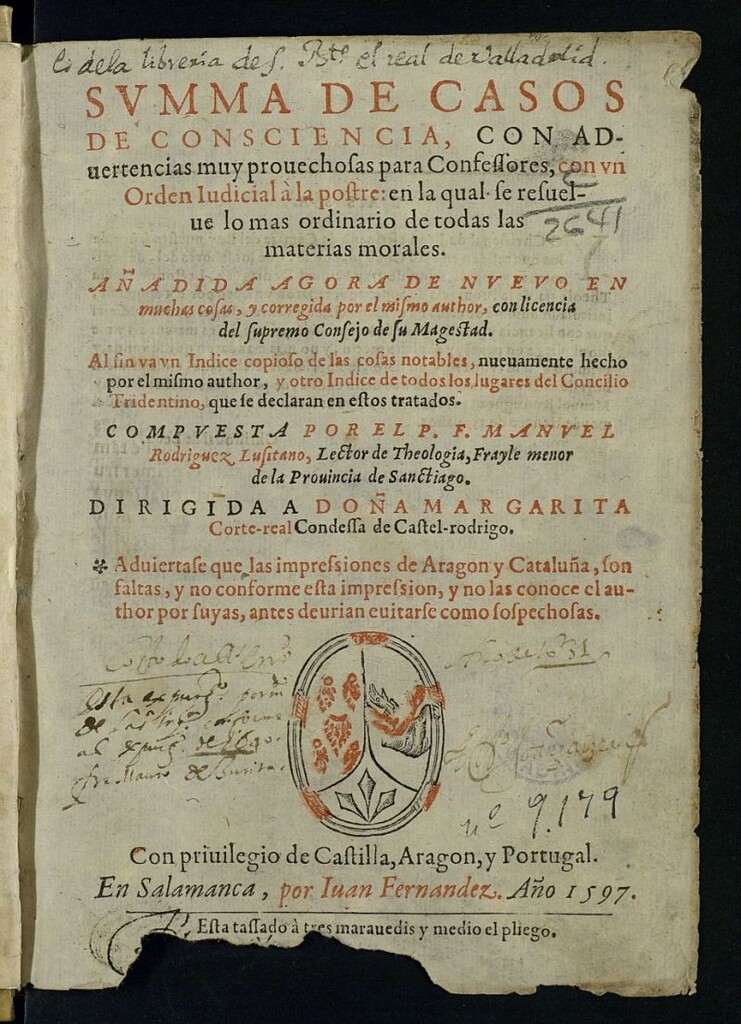 Es de la libreria de S. Bto el real de Valladolid.
SVMMA DE CASOS
DE CONSCIENCIA, CON AD-
uertencias muy prouechoſas para Confeſſores, con vn
Orden Iudicial à la poſtre: en la qual ſe reſuel-
ue lo mas ordinario de todas las
2641
materias morales.
AÑADIDA AGORA DE NVEVO EN
muchas coſas, y corregida por el miſmo author, con licencia
del ſupremo Conſejo de ſu Mageſtad.
Al fin va vn Indice copioſo de las coſas notables, nueuamente hecho
por el miſmo author, y otro Indice de todos los lugares del Concilio
Tridentino, que ſe declaran en eſtos tratados.
COMPVESTA POR EL P. F. MANVEL
Rodriguez Luſitano, Lector de Theologia, Frayle menor
de la Prouincia de Sanctiago.
DIRIGIDA A DOÑA MARGARITA
Corte-real Condeſſa de Caſtel-rodrigo.
✱ Aduiertaſe que las impreſsiones de Aragon y Cataluña, ſon
faltas, y no conforme eſta impreſsion, y no las conoce el au-
thor por ſuyas, antes deurian euitarſe como ſoſpechoſas.
Año de 1631
esta
de
al de
fr. Mauro de
nº 9.179
Con priuilegio de Caſtilla, Aragon, y Portugal.
En Salamanca, por Iuan Fernandez. Año 1597.
Eſta taſſado à tres marauedis y medio el pliego.